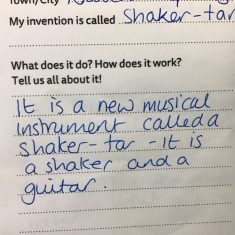 Town/City
My invention is called shaker-tar
What does it do? How does it work?
Tell us all about it!
It is a new musical
instrument called a
shaker-tar - it is
a shaker and a
guitar.